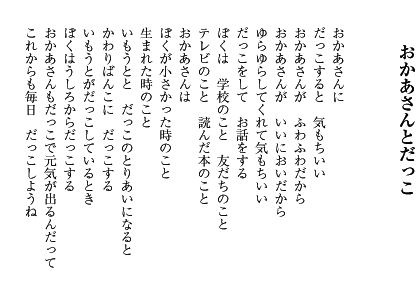 おかあさんとだっこ
おかあさんに
だっこすると　気もちいい
おかあさんが　ふわふわだから
おかあさんが　いいにおいだから
ゆらゆらしてくれて気もちいい
だっこをして　お話をする
ぼくは　学校のこと　友だちのこと
テレビのこと　読んだ本のこと
おかあさんは
ぼくが小さかった時のこと
生まれた時のこと
いもうとと　だっこのとりあいになると
かわりばんこに　だっこする
いもうとがだっこしているとき
ぼくはうしろからだっこする
おかあさんもだっこで元気が出るんだって
これからも毎日　だっこしようね